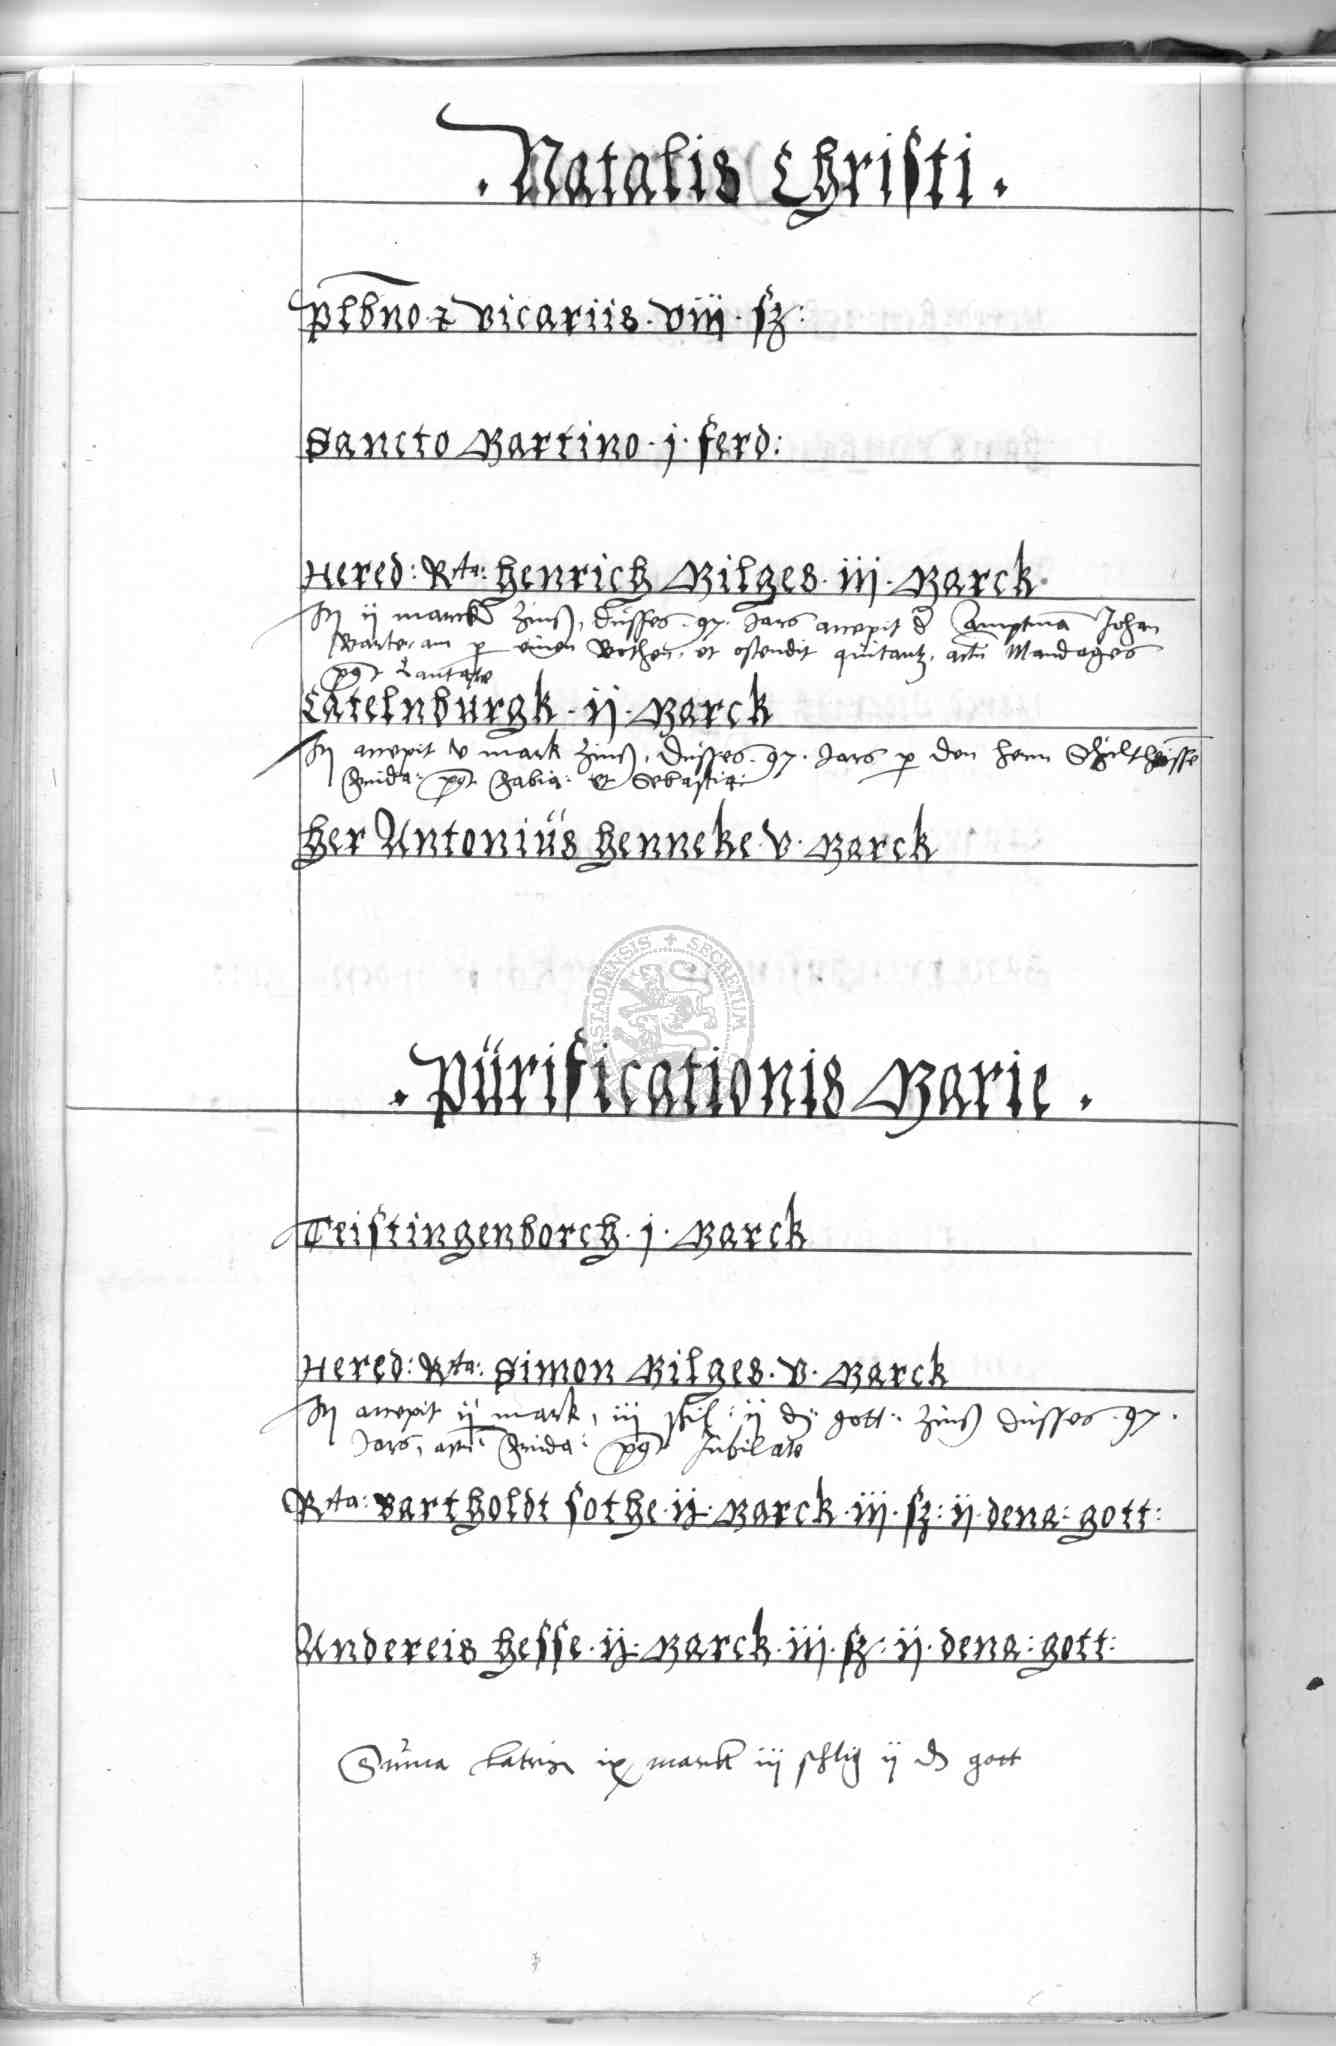 . Natalis Christi .
plbno & vicariis . viij . sz :
Sancto Martino . j . ferd :
Hered : Rta : Henrich Milges . iij . Marck .
ij marck zinß, dusses . 97 . Jars accepit d Amptma Johan
einen Bothen, et ostendit quitantz, actu Mandages
pq Cantate
Catelnburgk . ij . Marck
accepit v mark zinß, dusses . 97 . Jars p den hern Schulthessse
pq Fabia : et Sebastia :
Her Antonius Henneke . v . Marck
. Purificationis Marie .
Teistingenborch . j . Marck
Hered : Rta : Simon Milges . v . Marck
accepit ij mark, iij sil : ij d gott : zinß dusses . 97 .
Jars, actu pq Jubilate
Rta : Bartholdt Sothe . ij . Marck . iij . sz : ij . dena : gott :
Andereis Hesse . ij . Marck . iij . sz : ij . dena : gott :
Suma ix marck iij schlig ij d gott
STADIENSIS + SECRETUM